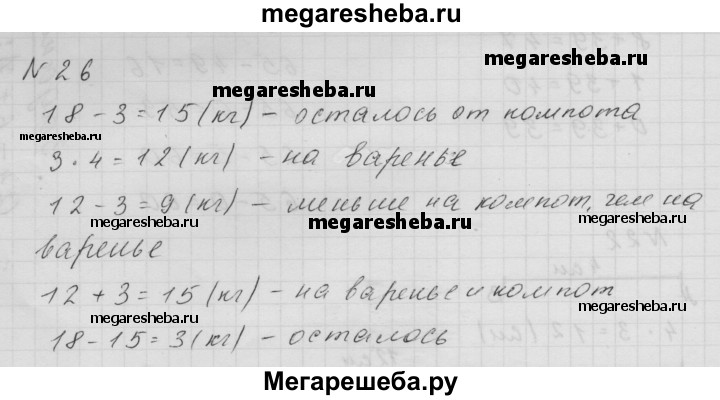 megaresheba.ru
N 26
megaresheba.ru
18 - 3 = 15 (кг) - осталось от компота
megaresheba.ru
megaresheba.ru
3 · 4 = 12 (кг) - на варенье
12 - 3 = 9 (кг) - меньше на компот, чем на
megaresheba.ru
megaresheba.ru
megaresheba.ru
варенье
12 + 3 = 15 (кг) - на варенье и компот
megaresheba.ru
megaresheba.ru
18 - 15 = 3 (кг) - осталось
Мегарешеба.ру